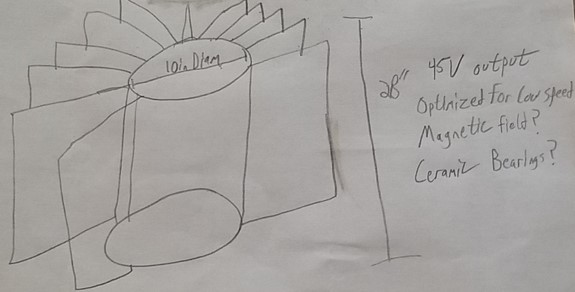 10in Diam
28"
45V output
Optimized For Low speed
Magnetic field?
Ceramic Bearings?